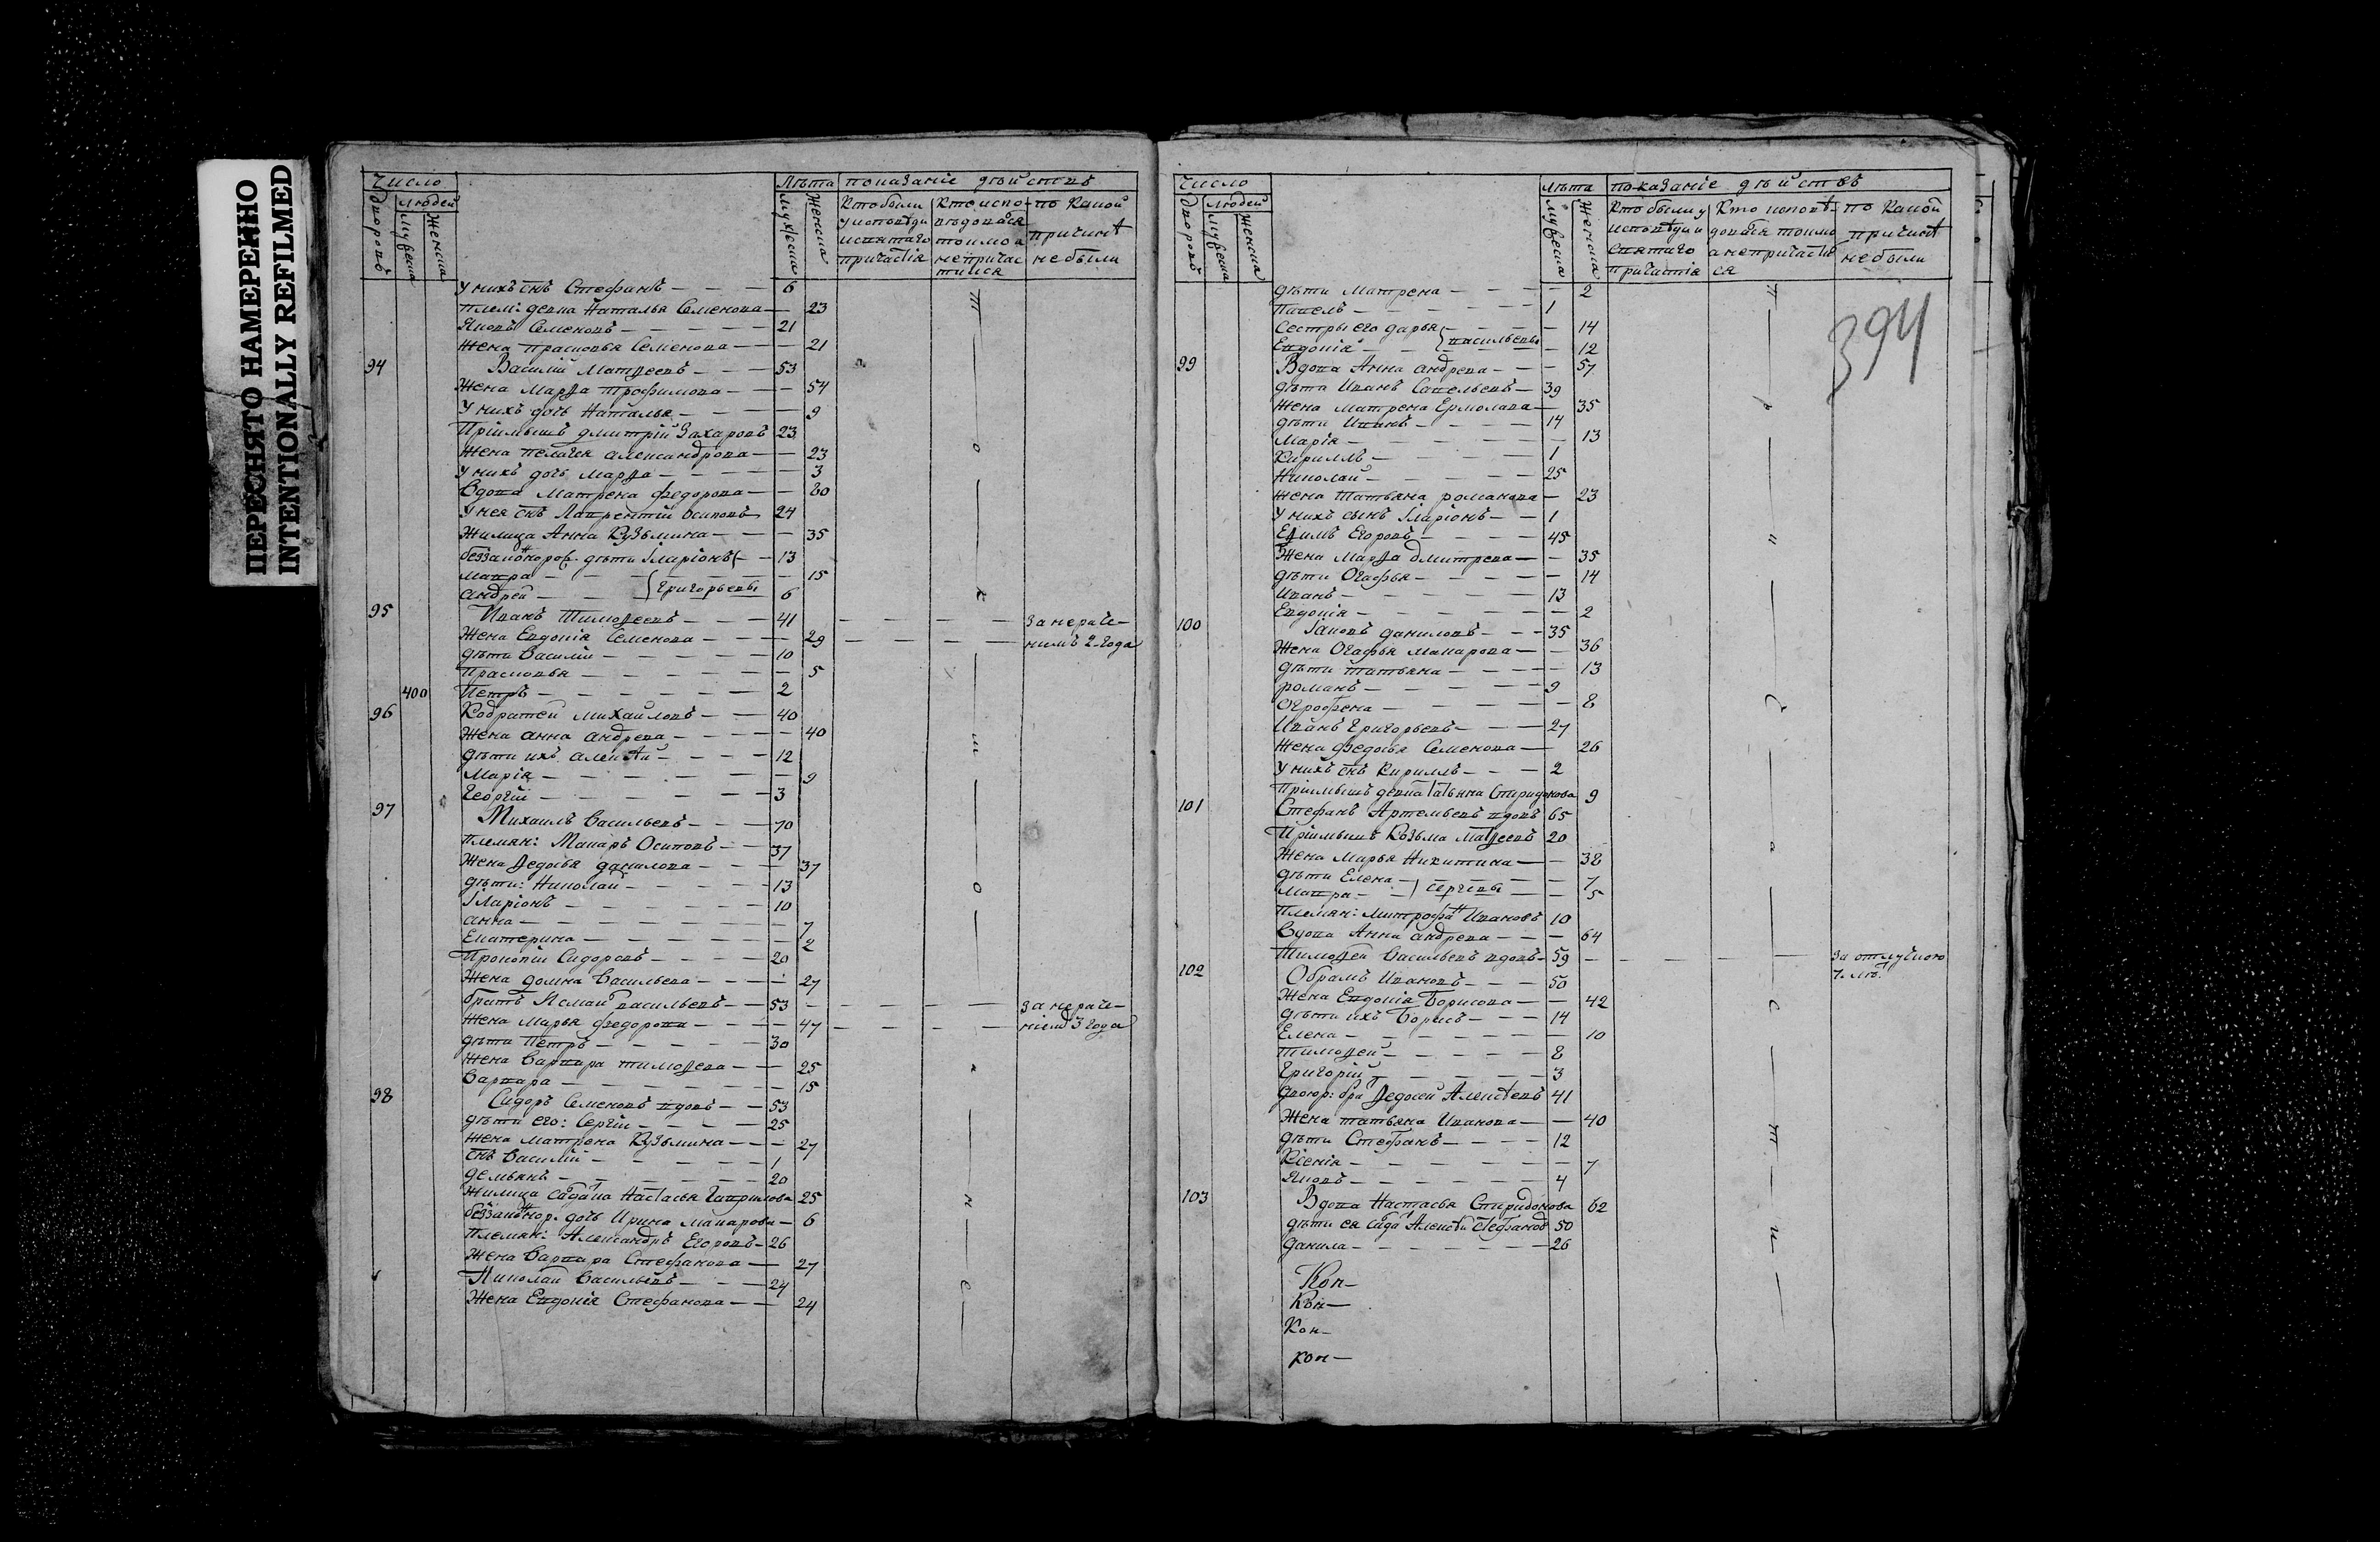 ПЕРЕСНЯТО НАМЕРЕННО
INTENTIONALLY REFILMED
Число
дворовъ
людей
мужеска
женска
Лѣта
мужеска
женска
показаніе дѣйствъ
Кто были у исповѣди и святаго причастія
Кто исповѣдовался токмо а непричастился
по какой причинѣ небыли
У нихъ снъ Стефанъ — — — 6
плем: девка Наталья Семенова — 23
Яковъ Семеновъ — — — — 21
Жена прасковья Семенова — — 21
94 Василій Матѳеевъ — — — 53
Жена Марѳа трофимова — — 54
У нихъ дочь Наталья — — — 9
Пріимышъ дмитрій Захаровъ 23
Жена пелагея александрова — 23
У нихъ дочь Марѳа — — — 3
Вдова Матрена федорова — — 80
У нея снъ Лаврентій осиповъ 24
Жилица Анна Кузьмина — — — 35
беззаконорож. дѣти Іларіонъ — — 13
Мавра — — — Григорьевы — 15
андрей — — — 6
95 Иванъ Тимоѳеевъ — — — 41 — — — — за нераче-
Жена Евдокія Семенова — — — 29 — — — — ніимъ 2 года
дѣти Василій — — — — — 10
Прасковья — — — — — 5
400 Петръ — — — — — 2
96 Кодратей михайловъ — — 40
Жена анна андрева — — — — 40
дѣти ихъ алексѣй — — — — 12
Марія — — — — — 9
Георгій — — — — — 3
97 Михаилъ Васильевъ — — — 70
племян: Макаръ Осиповъ — — 37
Жена Ѳедосья данилова — — — 37
дѣти: Николай — — — — 13
Іларіонъ — — — — — 10
анна — — — — — 7
Екатерина — — — — — 2
Прокопій Сидоровъ — — — — 20
Жена домна Васильева — — — 27
братъ Исай васильевъ — — 53 — — — — за нераче-
Жена Марья федорова — — — 47 — — — — ніемъ 3 года
дѣти Петръ — — — — — 30
Жена Варвара тимоѳева — — 25
Варвара — — — — — 15
98 Сидоръ Семеновъ вдовъ — — 53
дѣти его: Сергій — — — — 25
Жена матрена Кузьмина — — — 27
снъ Василій — — — — — 1
демьянъ — — — — — 20
Жилица Настасья Гаврилова 25
беззаконнор. дочь Ирина макарова — 6
племян: Александръ Егоровъ — 26
Жена Варвара Стефанова — — 27
Николай Васильевъ — — — 24
Жена Евдокія Стефанова — — 24
Число
дворовъ
людей
мужеска
женска
лѣта
мужеска
женска
показаніе дѣйствъ
Кто были у исповѣди и святаго причастія
Кто исповѣдовался токмо а непричастился
по какой причинѣ небыли
394
дѣти Матрена — — — — 2
Павелъ — — — — — 1
Сестры его дарья — — — 14
Евдокія — — васильевы — 12
99 Вдова Анна андрева — — — 57
дѣти Иванъ Савельевъ — 39
Жена матрена Ермолава — 35
дѣти Иванъ — — — — 14
Марія — — — — — 13
Кириллъ — — — — 1
Николай — — — — — 25
Жена татьяна романова — 23
У нихъ сынъ Іларіонъ — — 1
Еѳимъ Егоровъ — — — — 45
Жена Марѳа дмитрева — — 35
дѣти Огафья — — — — — 14
Иванъ — — — — — 13
Евдокія — — — — — 2
100 Іаковъ даниловъ — — — 35
Жена Огафья макарова — — 36
дѣти татьяна — — — — 13
романъ — — — — — 9
Огрофена — — — — — 8
Иванъ Григорьевъ — — — 27
Жена федосья Семенова — 26
У нихъ снъ Кириллъ — — — 2
Пріимышъ девка Татьяна Спиридонова 9
101 Стефанъ Артемьевъ вдовъ 65
Пріимышъ Козьма Матѳеевъ 20
Жена Марья Никитина — — 38
дѣти Елена — — Сергѣевы — — 7
Мавра — — 5
Племян: Митрофанъ Ивановъ 10
Вдова Анна андрева — — — 64
Тимоѳей Васильевъ вдовъ — 59 — — — — за отлучкою
102 Обрамъ Ивановъ — — — 50
Жена Евдокія Борисова — — 42
дѣти ихъ Борисъ — — — 14
Елена — — — — — 10
тимоѳей — — — — — 8
Григорій — — — — — 3
двоюр: бра Ѳедосей Алексѣевъ 41
Жена татьяна Иванова — — 40
дѣти Стефанъ — — — — 12
Ксенія — — — — — 7
Яковъ — — — — — 4
103 Вдова Настасья Спиридонова 62
дѣти ея Алексѣй Стефановъ 50
данила — — — — — 26
Кон—
Кон—
Кон—
кон—